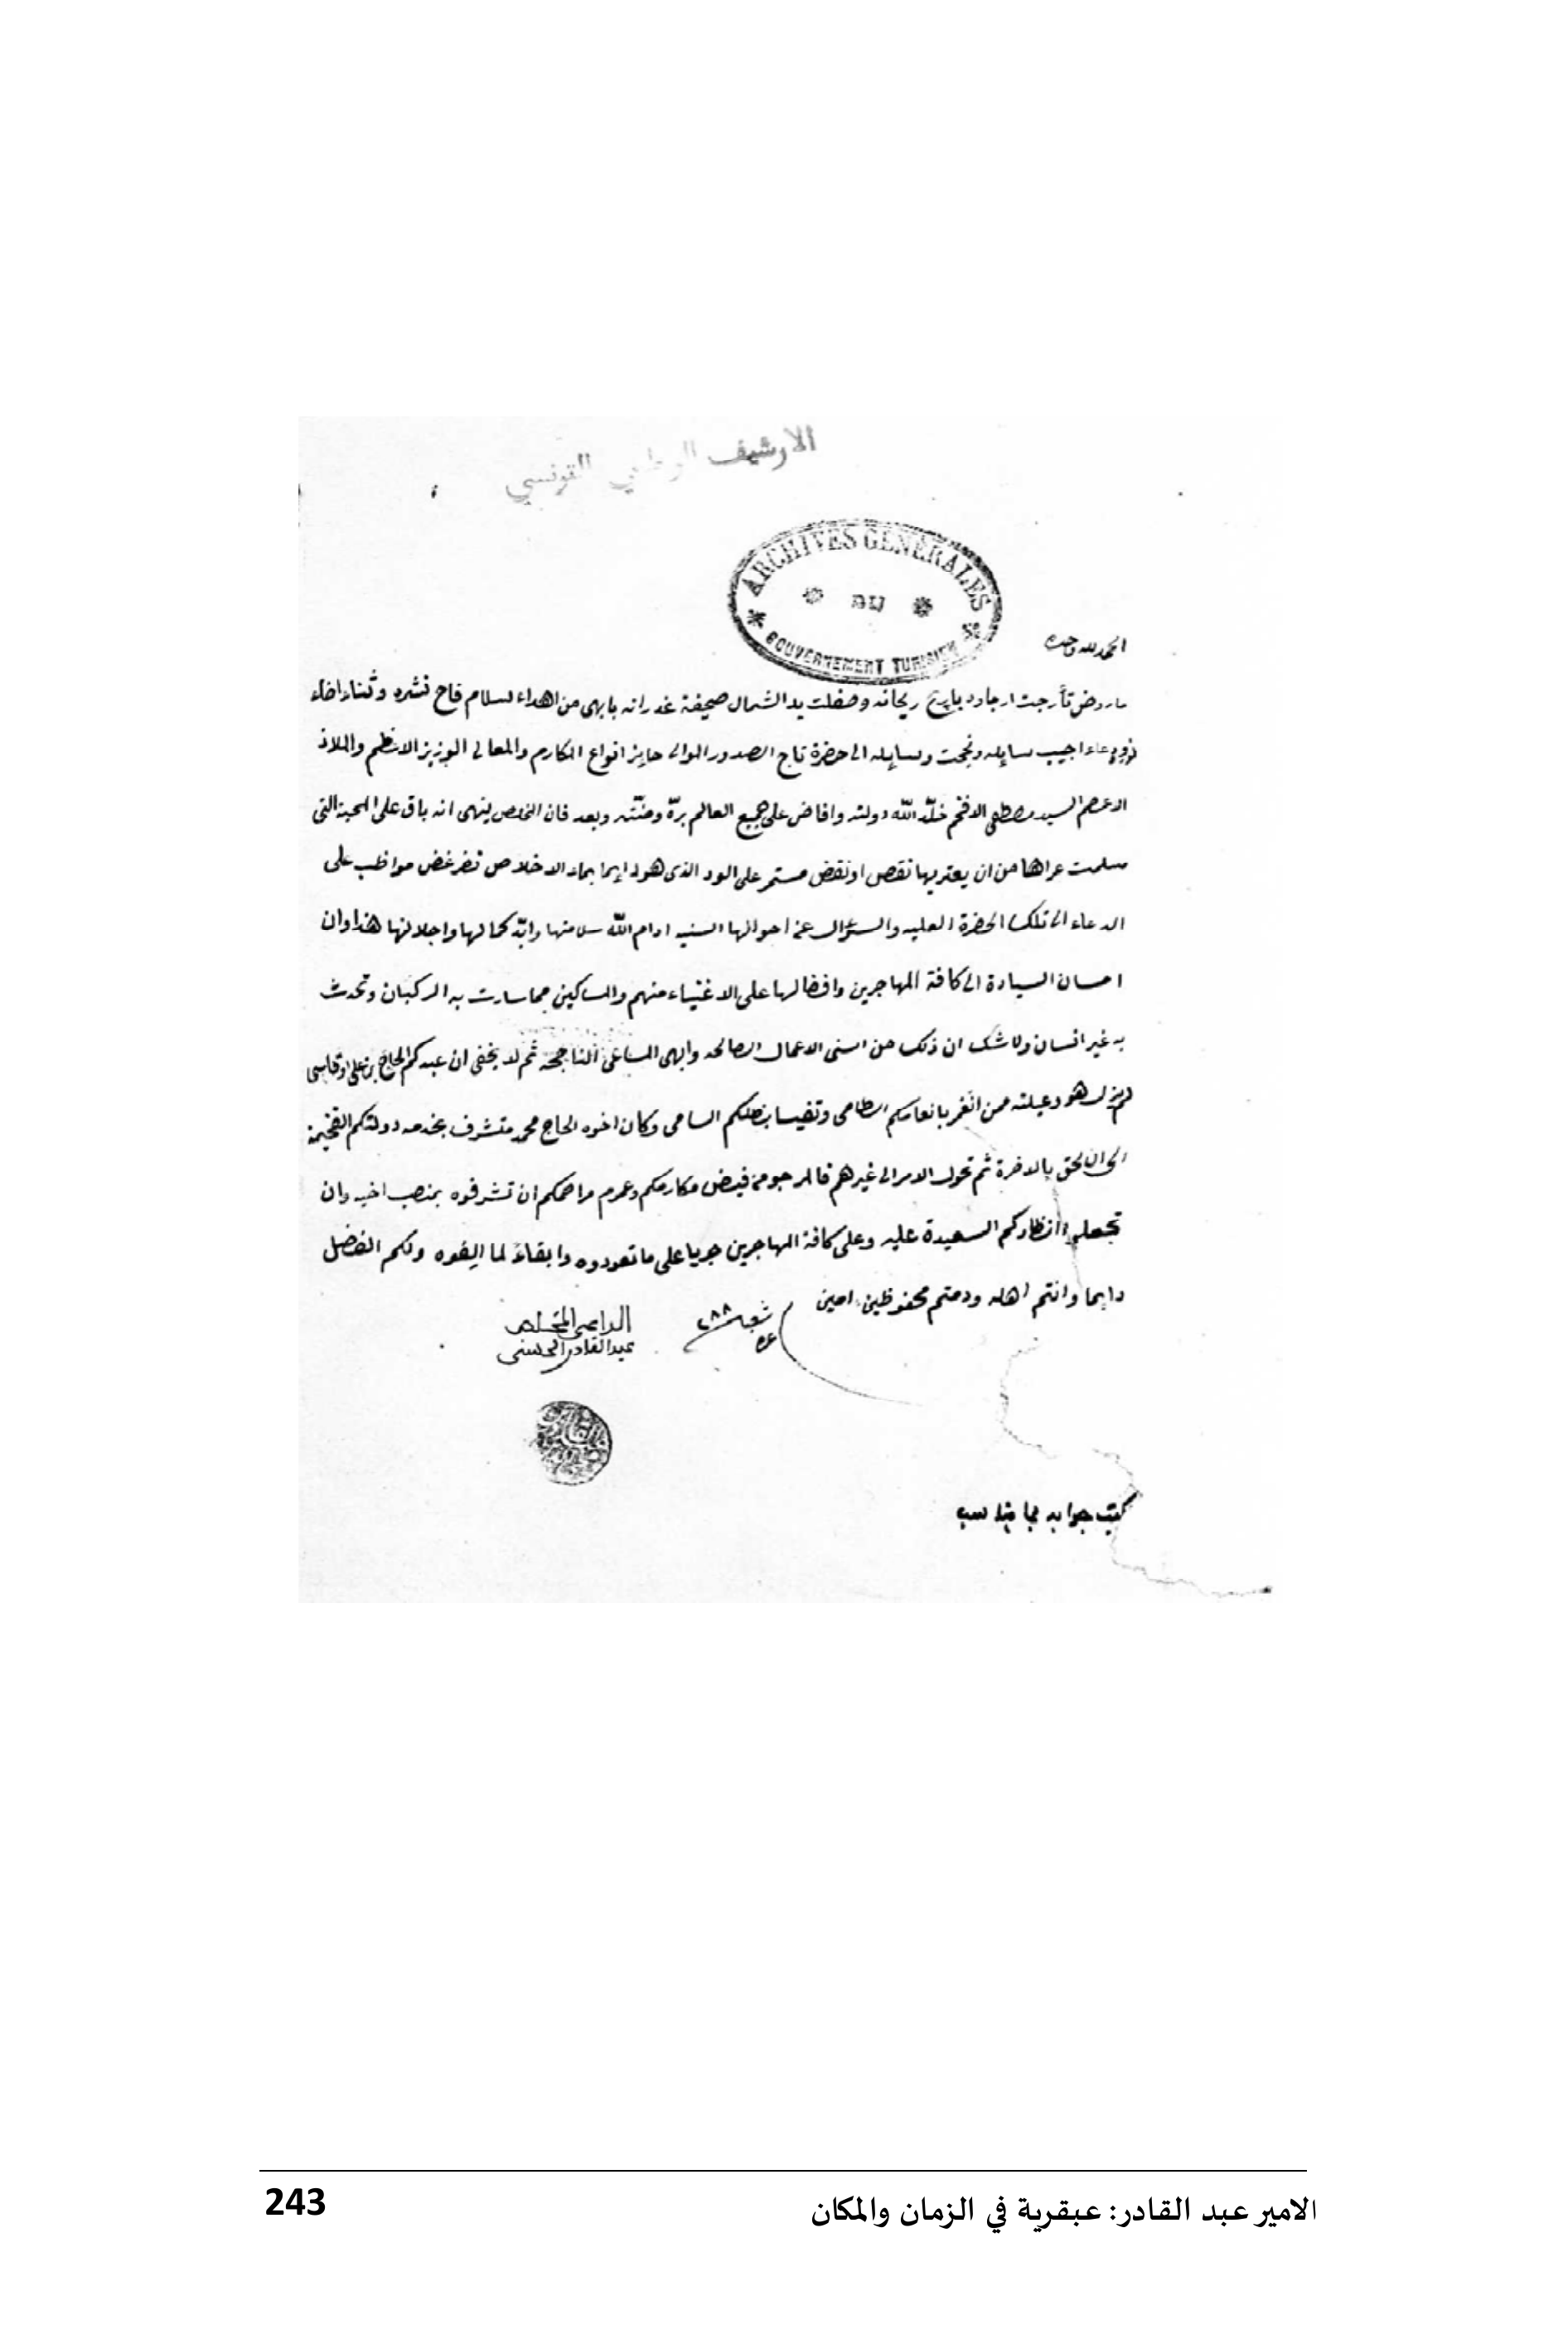 الارشيف الوطني التونسي
ARCHIVES GENERALES
GOUVERNEMENT TUNISIEN
الحمد لله وحده
ما روض تأرجت ارجاوه باريج ريحانه وصقلت يد الشمال صحيفة غدرانه بابهى من اهداء سلام فاح نشره وثناء اضاء
ودعاء اجيب سايله ونجحت وسايله الى حضرة تاج الصدور الموالى حايز انواع المكارم والمعالى الوزير الاعظم والملاذ
الاعصم السيد مصطفى الافخم خلّد الله دولته وافاض على جميع العالم برّه ومنّته وبعد فان المخلص ينهى انه باق على المحبة التى
سلمت عراها من ان يعتريها نقص او نقض مستمر على الود الذى هو دايما بماء الاخلاص نضر غض مواظب على
الدعاء الى تلك الحضرة العليه والسؤال عن احوالها السنيه ادام الله سلامتها وابّد كمالها واجلالها هذا وان
احسان السيادة الى كافة المهاجرين وافضالها على الاغنياء منهم والمساكين مما سارت به الركبان وتحدث
به غير انسان ولا شك ان ذلك من اسنى الاعمال الصالحه وابهى المساعى الناجحه ثم لا يخفى ان عبدكم الحاج بن على
لم يزل هو وعيلته ممن انغمر بانعامكم الطامى وتفيا بظلكم السامى وكان اخوه الحاج محمد متشرف بخدمه دولتكم الفخيمة
الى ان لحق بالاخرة ثم تحول الامر الى غيرهم فالمرجو من فيض مكارمكم وعموم مراحمكم ان تشرفوه بمنصب اخيه وان
تجعلوا انظاركم السعيدة عليه وعلى كافة المهاجرين جريا على ما تعودوه وابقاءً لما الفوه ولكم الفضل
دايما وانتم اهله ودمتم محفوظين امين
الداعى المخلص
عبد القادر الحسنى
كتب جوابه بما يناسب
الامير عبد القادر: عبقرية في الزمان والمكان
243